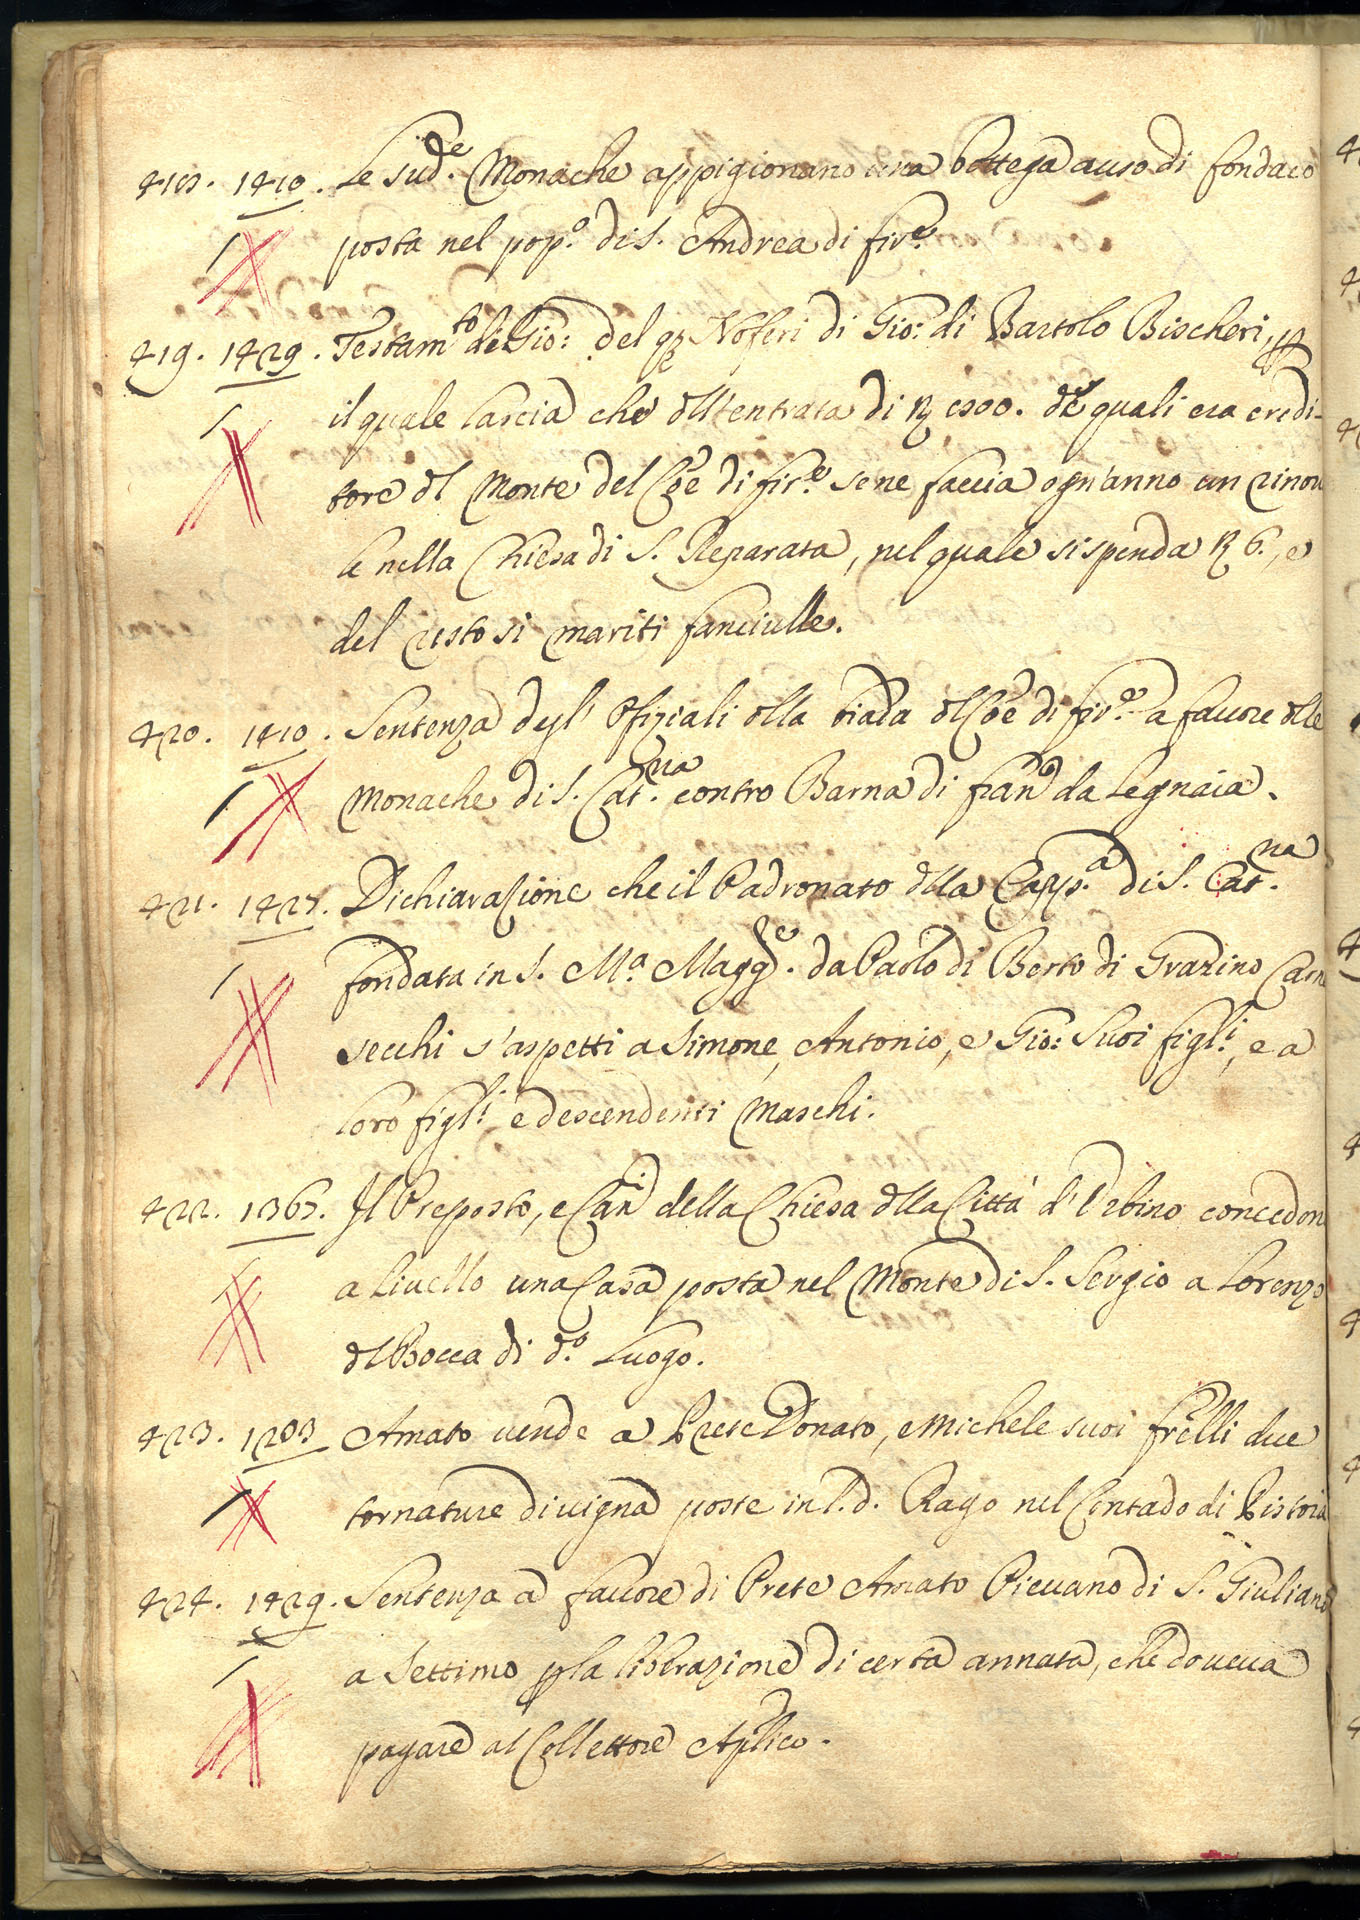 418. 1410. Le Sud.e Monache appigionano una bottega a uso di fondaco
posta nel pop.o di S. Andrea di fir.e
419. 1429. Testam.to di Gio: del q. Noferi di Gio: di Bartolo Bischeri, p
il quale lascia che dll'entrata di 1500. de quali era credi-
tore dl Monte del Coe di fir.e se ne faccia ogn'anno un rinov
le nella Chiesa di S. Reparata, nel quale si spenda 6., e
del resto si mariti fanciulle.
420. 1410. Sentenza degl' Ofiziali dlla dl Coe di fir.e a favore dlle
Monache di S. Cat.na contro Barna di Fran.o da Legnaia.
421. 1427. Dichiarazione che il Padronato dlla Capp.a di S. Cat.na
fondata in S. M.a Magg.e da Paolo di Berto di Grazino Carn
secchi s'aspetti a Simone, Antonio, e Gio: Suoi figl.i, e a
loro figl.i e descendenti Maschi.
422. 1365. Il Preposto, e Can.i della Chiesa dlla Città d'Urbino concedon
a livello una Casa posta nel Monte di S. Sergio a Lorenzo
dl Bocca di d.o Luogo.
423. 1283 Amato vende a Prete Donato, e Michele suoi frelli due
tornature di vigna poste in l. d. Rago nel Contado di Pistoia
424. 1429. Sentenza a favore di Prete Amato Pievano di S. Giuliano
a Settimo p la liberazione di certa annata, che doveva
pagare al Collettore Aplico.